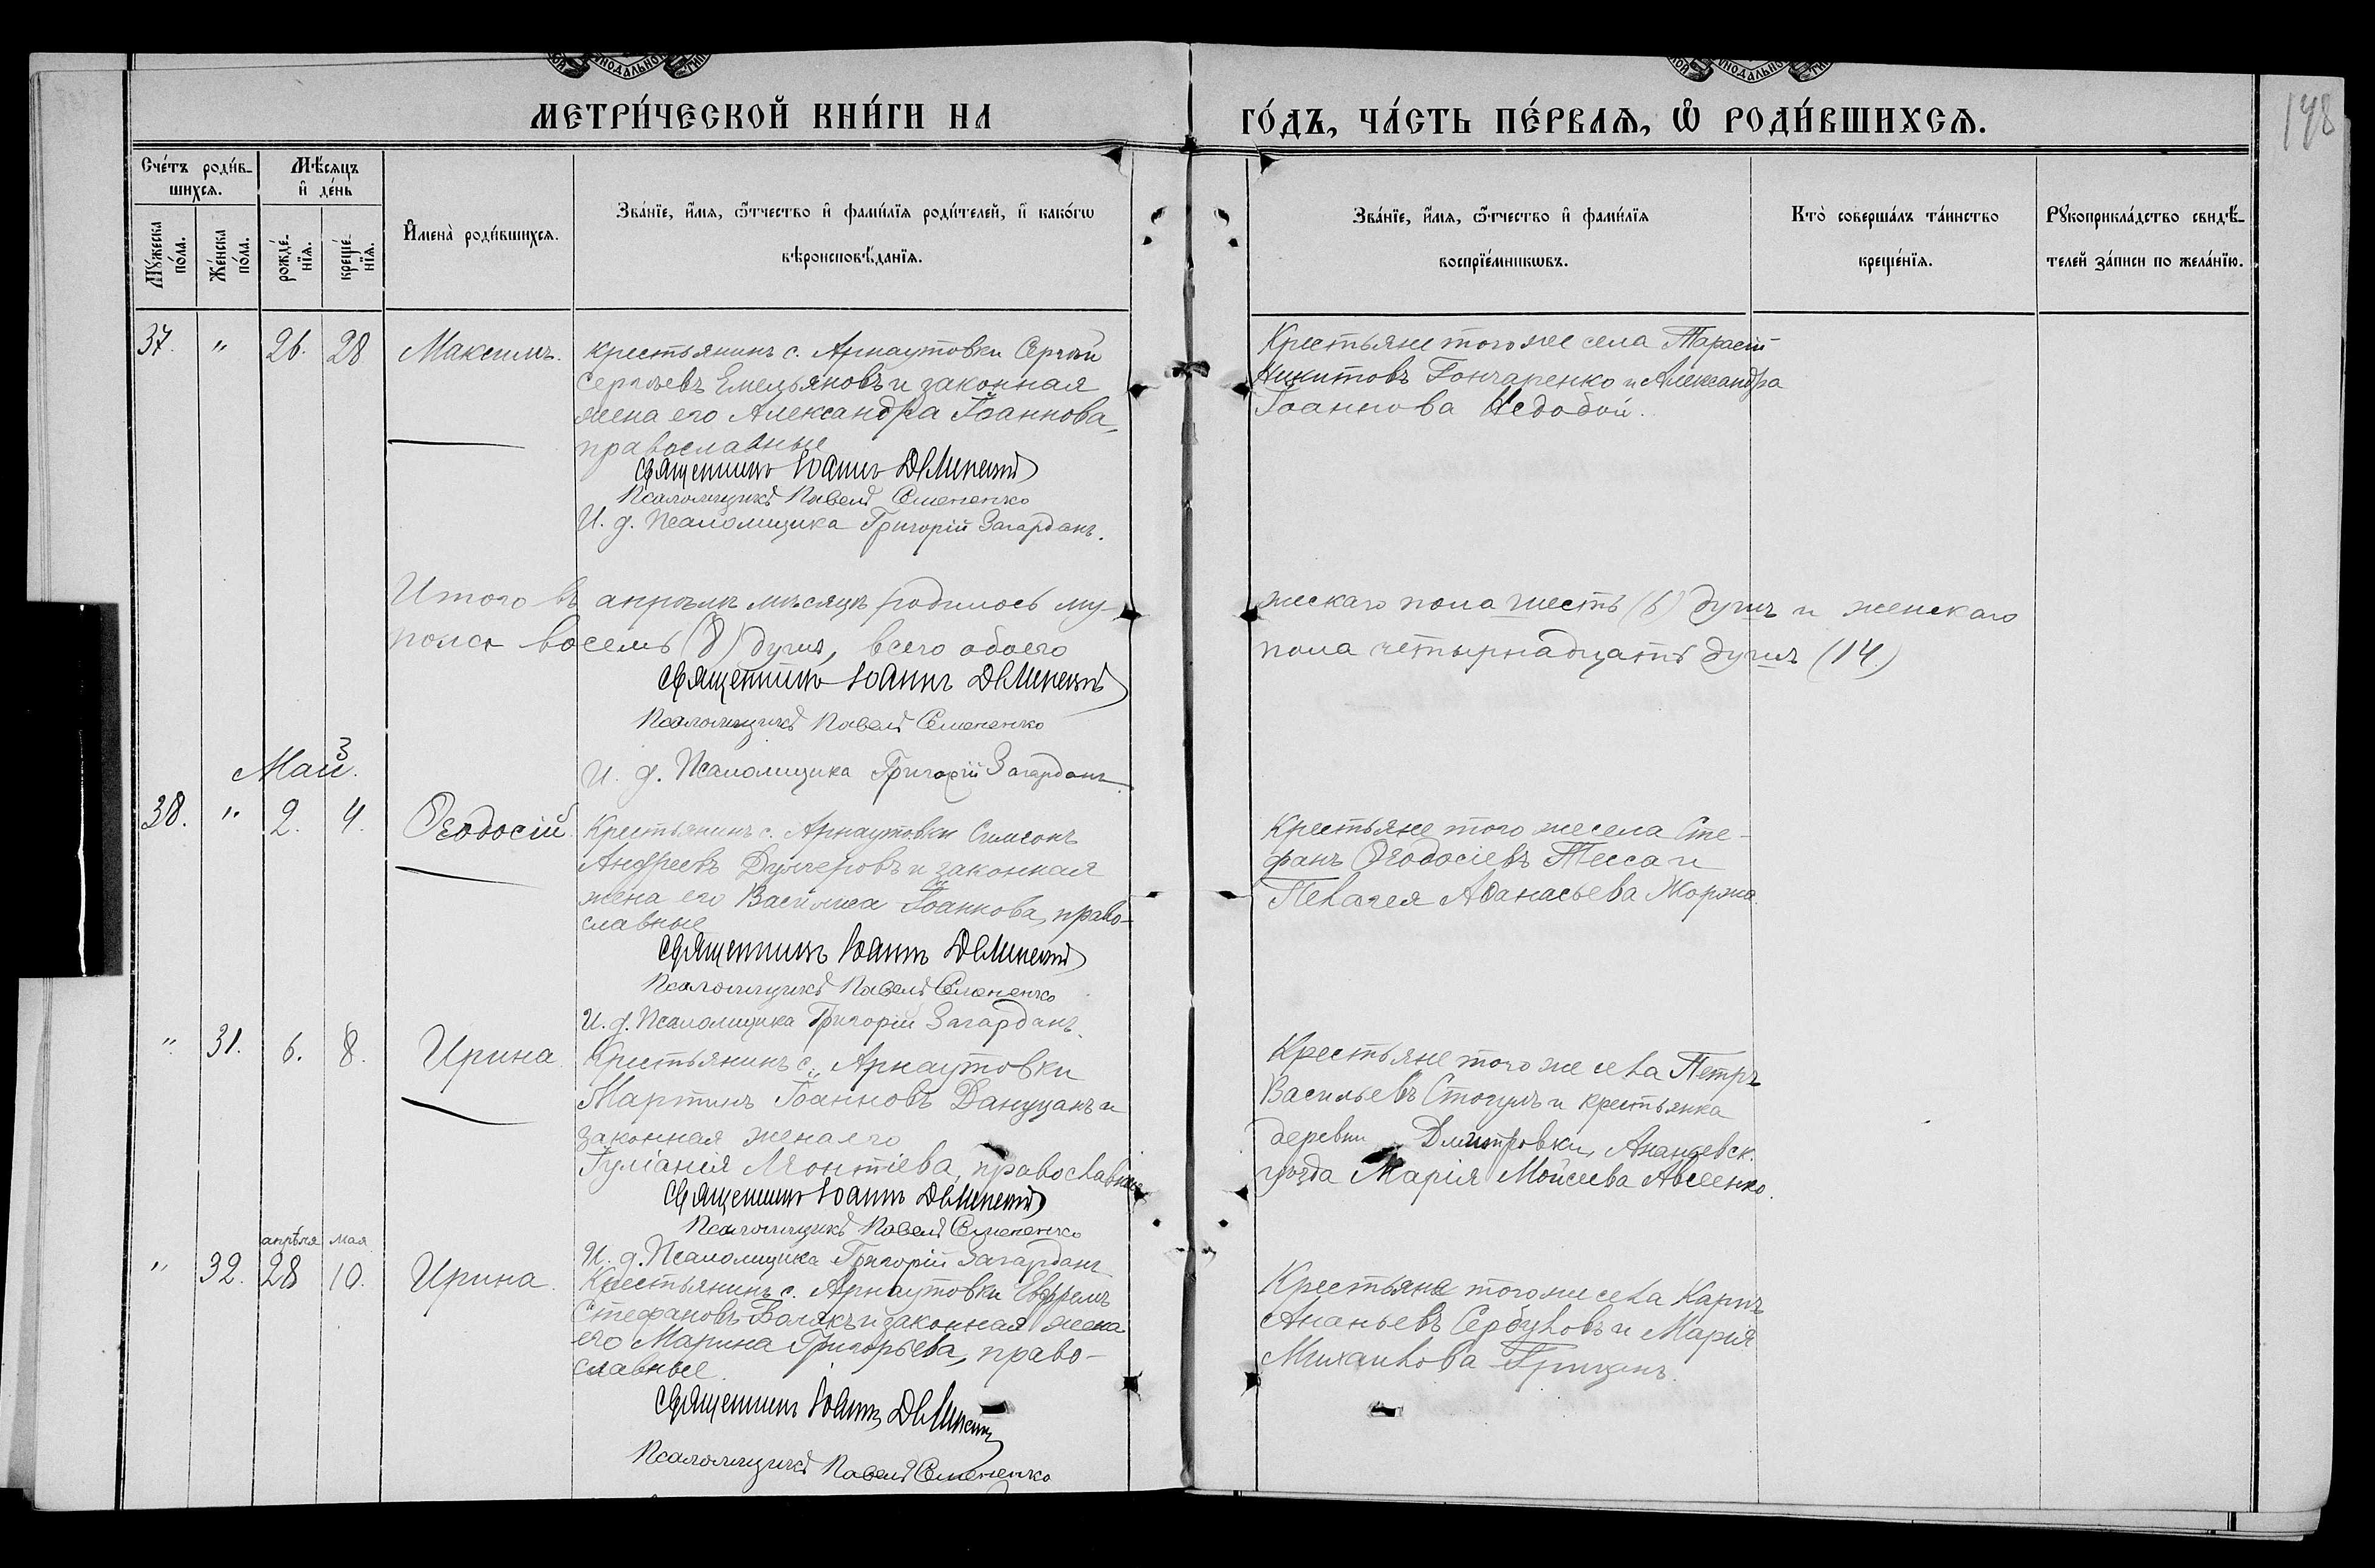 МЕТРИ́ЧЕСКОЙ КНИ́ГИ НА ГО́ДЪ, ЧА́СТЬ ПЕ́РВАѦ, Ѡ҆ РОДИ́ВШИХСѦ.
148
Сче́тъ роди́в-
шихсѧ.
Мѣ́сѧцъ
и҆ де́нь
Мꙋ́жеска
по́ла.
Же́нска
по́ла.
рожде́-
нїѧ.
креще́-
нїѧ.
И҆мена̀ роди́вшихсѧ.
Зва́нїе, и҆́мѧ, ѻ҆́тчество и҆ фами́лїѧ роди́телей, и҆ како́гѡ
вѣроисповѣ́данїѧ.
Зва́нїе, и҆́мѧ, ѻ҆́тчество и҆ фами́лїѧ
воспрїе́мникѡвъ.
Кто̀ соверша́лъ та́инство
креще́нїѧ.
Рꙋкоприкла́дство свидѣ́-
телей за́писи по жела́нїю.
37. " 26. 28 Максимъ.
крестьянинъ с. Арнаутовки Сергѣй
Сергѣевъ Емельяновъ и законная
жена его Александра Іоаннова,
православные
священникъ Іоаннъ
Псаломщикъ Павелъ Семененко
И. д. Псаломщика Григорій Загарданъ.
Крестьяне того же села Тарасій
Никитовъ Гончаренко и Александра
Іоаннова Недобой.
Итого въ апрѣлѣ мѣсяцѣ родилось му-
жскаго пола шесть (6) душъ и женскаго
пола восемь (8) душъ, всего обоего
пола четырнадцать душъ (14.)
священникъ Іоаннъ
Псаломщикъ Павелъ Семененко
И. д. Псаломщика Григорій Загарданъ.
3
Май.
38. " 2. 4. Ѳеодосій.
Крестьянинъ с. Арнаутовки Симеонъ
Андреевъ и законная
жена его Василиса Іоаннова, право-
славные
священникъ Іоаннъ
Псаломщикъ Павелъ Семененко
И. д. Псаломщика Григорій Загарданъ.
Крестьяне того же села Сте-
фанъ Ѳеодосіевъ Тесса и
Пелагея Аѳанасьева Моржа.
" 31. 6. 8. Ирина.
Крестьянинъ с. Арнаутовки
Мартинъ Іоанновъ Дануцанъ и
законная жена его
Іуліанія Леонтіева, православные
священникъ Іоаннъ
Псаломщикъ Павелъ Семененко
И. д. Псаломщика Григорій Загарданъ
Крестьяне того же села Петръ
Васильевъ и крестьянка
деревни Дмитровки, Ананьевск.
уѣзда Марія Мойсеева Авсеенко.
апрѣля мая
" 32. 28 10. Ирина.
Крестьянинъ с. Арнаутовки Евфремъ
Стефановъ и законная жена
его Марина Григорьева, право-
славные.
священникъ Іоаннъ
Псаломщикъ Павелъ Семененко
Крестьяне того же села Карпъ
Ананьевъ Сербуловъ и Марія
Михаилова Грицанъ.